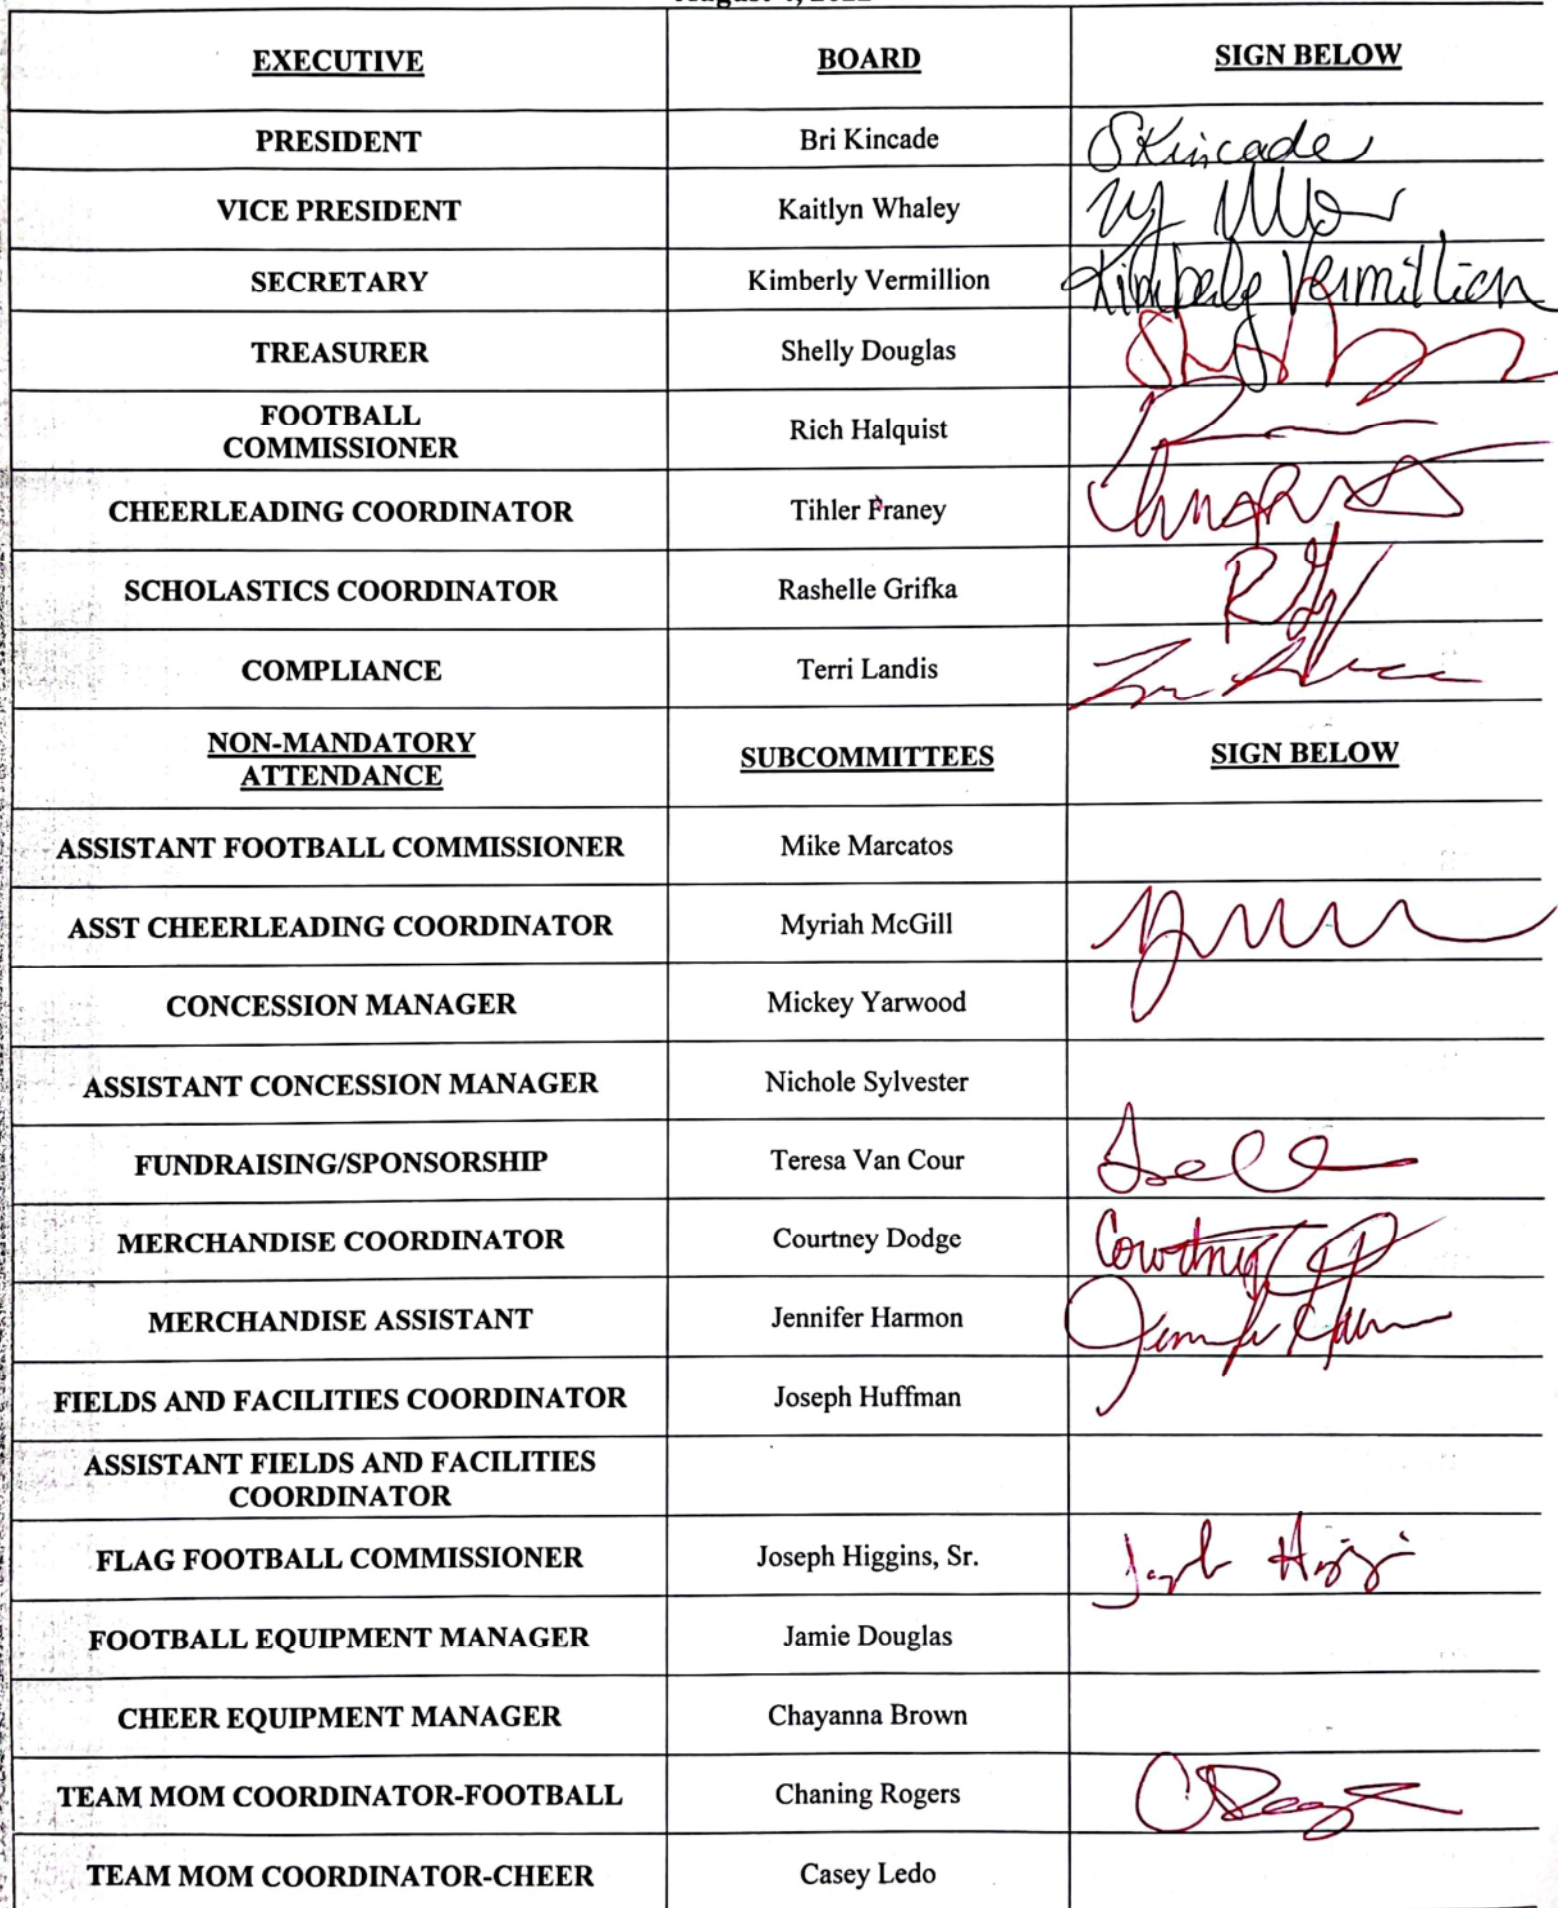 EXECUTIVE BOARD SIGN BELOW
PRESIDENT Bri Kincade SKincade
VICE PRESIDENT Kaitlyn Whaley
SECRETARY Kimberly Vermillion Kimberly Vermillion
TREASURER Shelly Douglas
FOOTBALL
COMMISSIONER Rich Halquist
CHEERLEADING COORDINATOR Tihler Franey
SCHOLASTICS COORDINATOR Rashelle Grifka
COMPLIANCE Terri Landis
NON-MANDATORY
ATTENDANCE SUBCOMMITTEES SIGN BELOW
ASSISTANT FOOTBALL COMMISSIONER Mike Marcatos
ASST CHEERLEADING COORDINATOR Myriah McGill
CONCESSION MANAGER Mickey Yarwood
ASSISTANT CONCESSION MANAGER Nichole Sylvester
FUNDRAISING/SPONSORSHIP Teresa Van Cour
MERCHANDISE COORDINATOR Courtney Dodge Courtney
MERCHANDISE ASSISTANT Jennifer Harmon
FIELDS AND FACILITIES COORDINATOR Joseph Huffman
ASSISTANT FIELDS AND FACILITIES
COORDINATOR
FLAG FOOTBALL COMMISSIONER Joseph Higgins, Sr.
FOOTBALL EQUIPMENT MANAGER Jamie Douglas
CHEER EQUIPMENT MANAGER Chayanna Brown
TEAM MOM COORDINATOR-FOOTBALL Chaning Rogers
TEAM MOM COORDINATOR-CHEER Casey Ledo